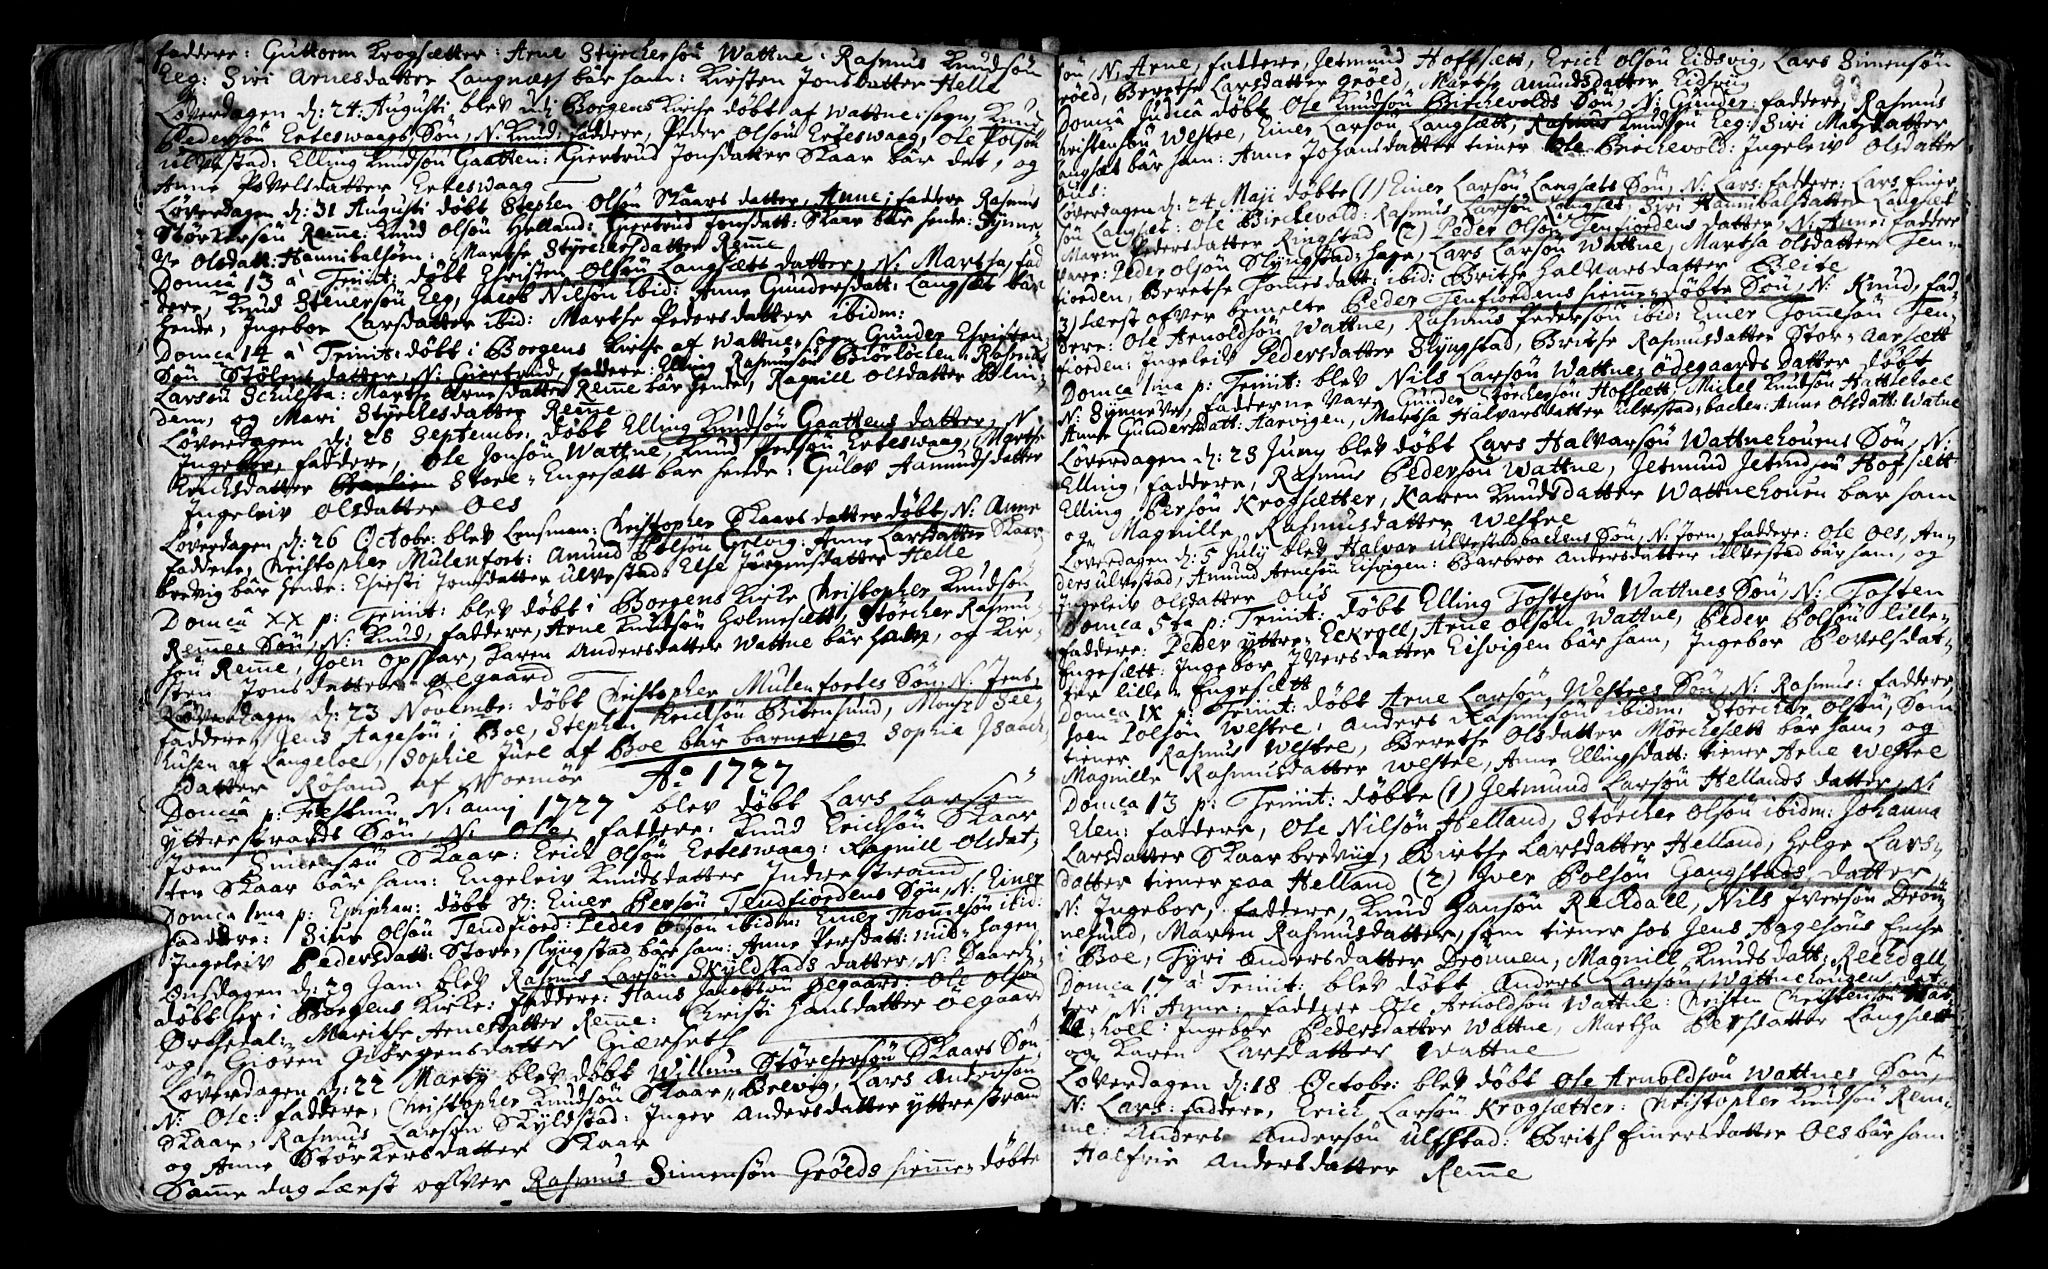 faddere: Guttorm Krogsætter: Arne Styrchersön Wattne: Rasmus Knudsön
Eeg: Siri Arnesdatter Langnæss bär ham: Kirsten Jonsdatter Helle
Löverdagen d: 24: Augusti blev udj Borgens Kirke döbt af Wattne: sogn, Knud
Pedersön Erteswaags Sön, N: Knud: Faddere, Peder Olsön Erteswaag, Ole Polsön
Ulvestad: Elling Knudsön Gaatten: Giertrud Jonsdatter Skaar bär det, og
Anne Povelsdatter Erteswaag
Löverdagen d: 31 Augusti döbt Stephen Olsön Skaars datter, Anne; faddere Rasmus
Störkersön Reme: Knud Olsön Helland: Giertrud Jonsdatt: Skaar bär hende: Synne-
ve Olsdatt: Hannibalsöen: Marthe Styrchersdatter Reme
Domca 13 à Trinit: döbt Christen Olsön Langsætts datter, N: Martha, fad
dere, Knud Stenersön Eeg, Jacob Nilsön ibid: Anne Gundersdatt: Langsæt bär
hende, Ingebor Larsdatter ibid: Marthe Pedersdatter ibidm:
Domca 14 à Trinit: döbt i Borgens Kirke af Wattne: sogn Gunder Christen
Sön Stölens datter, N: Giertrud, faddere: Elling Rasmusön Biörlöchen: Rasmus
Larsön Schulsta: Marthe Arnesdatter Reme bär hende, Ragnill Olsdatter Blin-
dem, og Mari Styrchesdatter Reme
Löverdagen d: 28 Septembr: döbt Elling Knudsön Gaattens datter, N:
Ingebor, faddere, Ole Jonsön Wattne, Knud Persön Erteswaag, Marthe
Erichsdatter Store-Engesætt bar hende: Gulov Aamundsdatter
Ingeleiv Olsdatter Oes
Löverdagen d: 26 Octobr: blev Lensman: Christopher Skaars datter döbt, N: Anne
faddere, Christopher Mulenfort: Amund Polsön Gelvig: Anne Larsdatter Skaar
brevig bär hende: Chirsti Jonsdatter Ulvestad: Else Jörgensdatter Helle
Domca XX p: Trinit: blev döbt i Borgens Kirke Christopher Knudsön
Remes Sön, N: Knud, faddere, Arne Knudsön Holmesætt, Störcher Rasmu-
sön Reme, Joen Opskar, Karen Andersdatter Wattne bär ham, og Kir-
sten Jonsdatter Ödegaard
Löverdagen d: 23 Novembr: döbt Christopher Mulenfortes Sön, N: Jens,
faddere, Jens Aagesön i Boe, Stephen Knudsön Bitensund, Monsr See-
husen af Langeloe, Sophie Juel af Boe bär barnet, og Sophie Isaach
datter Rösand af Normör
Ao 1727
Domca p: Festum N: anni 1727 blev döbt Lars Larsön
Ytterstrands Sön, N: Ole, faddere: Knud Erichsön Skaar
Joen Simensön Skaar: Erich Olsön Erteswaag: Ragnill Olsdat-
ter Skaar bär ham: Engeleiv Knudsdatter Indrestrand
Domca 1ma p: Epiphan: döbt N: Einer Persön Tendfiordens Sön, N: Einer
faddere: Siur Olsön Tendfiord: Peder Olsön ibidm: Einer Thommesön ibid:
Ingeleiv Pedersdatt: Store-Slyngstad bär ham: Anne Persdatt: mid-hagen
Onsdagen d: 29 Jan: blev Rasmus Larsön Skyldstads datter, N: Baard
döbt her i Borgens Kirke: faddere: Hans Jacobsön Ödegaard: Ole Olsön
Örchedal: Marithe Arnesdatter Reme: Christi Hansdatter Ödegaard
og Gioren Giörgensdatter Giærseth
Löverdagen d: 22 Martij blev döbt Willum Störchersön Skaars Sön,
N: Ole: faddere, Christopher Knudsön Skaar, Brevig, Lars Andersön
Skaar, Rasmus Larsön Skyldstad: Inger Andersdatter Yttrestrand
og Anne Störkersdatter Skaar
Same dag Læst ofver Rasmus Simensön Gröeds hieme-döbte
sön, N: Arne, faddere, Jetmund Hoffsætt, Erich Olsön Eidsvig, Lars Simensön
Gröed, Berethe Larsdatter Gröed, Marthe Amundsdatter Eidsvig
Domca Judica döbt Ole Knudsön Birchevolds Sön, N: Gunder: faddere, Rasmus
Christensön Westre, Einer Larsön Langsætt, Rasmus Knudsön Eeg: Siri Matzdatter
Langsæt bär ham: Anne Johansdatter tiener Ole Birchevold: Ingeleiv Olsdatter
Ous:
Löverdagen d: 24 Maji döbte (1) Einer Larsön Langsæts Sön, N: Lars: faddere: Lars Einer
sön Langset: Ole Birchevold: Rasmus Larsön Langset: Siri Hannibalsdatter Langsæt
Maren Pedersdatter Ringstad (2) Peder Olsön Tenfiordens datter, N: Anne: faddere
vare: Peder Olsön Slyngstad: hage, Lars Larsön Wattne, Martha Olsdatter Ten-
fiorden, Berethe Tomesdatt: ibid: Brithe Halvarsdatter Blite
3) Læst ofver bemelte Peder Tenfiordens hieme-döbte Sön, N: Knud, fad-
dere: Ole Arnoldsön Wattne, Rasmus Pedersön ibid: Einer Tomesön Ten-
fiorden: Ingeleiv Pedersdatter Slyngstad, Brithe Rasmusdatter Stor-Aarsætt
Domca 1ma p: Trinit: blev Nils Larsön Wattne Ödegaards datter döbt
N: Synneve, fadderne vare Gunder Störchersön Hofsætt Michel Knudsön Hattlehoel
Anne Gundersdatt: Aarvigen, Martha Halvarsdatter Ulvestad: backen: Anne Olsdatt: Watne
Löverdagen d: 28 Juny blev döbt Lars Halvarsön Wattnehouens Sön, N:
Elling, faddere, Rasmus Pedersön Wattne, Jetmund Jetmdsön Hofsætt
Elling Persön Krogsætter, Karen Knudsdatter Wattnehouen bar ham
og Magnille Rasmusdatter Westre
Löverdagen d: 5 July blev Halvar Ulvestadbackens Sön, N: Joen, faddere: Ole Oes, An-
ders Ulvestad, Amund Arnesön Eisvigen: Barbroe Andersdatter Ulvestad bär ham, og
Ingeleiv Olsdatter Ous
Domca 5ta p: Trinit: döbt Elling Tostesön Wattnes Sön, N: Tosten
faddere: Peder Yttre-Eckroll, Arne Olsön Wattne, Peder Polsön lille-
Engesætt: Ingebor Iversdatter Eisvigen bär ham, Ingebor Povelsdat-
ter lille-Engesætt
Domca IX p: Trinit: döbt Arne Larsön, Westres Sön, N: Rasmus: faddere,
Joen Polsön Westre, Anders Rasmusön ibidm: Störcher Olsön, som
tiener Rasmus Westre, Berethe Olsdatter Mörchesett bär ham, og
Magnille Rasmusdatter Westre, Anne Ellingsdatt: tiener Arne Westre
Domca 13 p: Trinit: döbte (1) Jetmund Larsön Hellands datter, N:
Elen: faddere, Ole Nilsön Helland, Störcher Olsön ibidm: Johanna
Larsdatter Skaar breviig, Birthe Larsdatter Helland, Helge Lars-
datter tiener paa Helland (2) Iver Polsön Gangstads datter,
N: Ingebor, faddere, Knud Hansön Reckdall, Nils Iversön Dron-
nesund, Maren Rasmusdatter, som tiener hos Jens Aagesöns Enke
i Boe, Tyri Andersdatter Dronnen, Magnill Knudsdatt: Reckdall
Domca 17 à Trinit: blev döbt Anders Larsön Wattnehougens dat-
ter N: Anne: faddere Ole Arnoldsön Wattne: Christen Christensön Hat-
tlehoel: Ingebor Pedersdatter Wattne, Martha Persdatter Langsætt
og Karen Larsdatter Wattne
Löverdagen d: 18 Octobr: blev döbt Ole Arnoldsön Wattnes Sön,
N: Lars: faddere, Erich Larsön Krogsætter: Christopher Knudsön Rem-
me: Anders Andersön Ulfstad: Brith Einersdatter Oes bär ham
Halfrie Andersdatter Reme